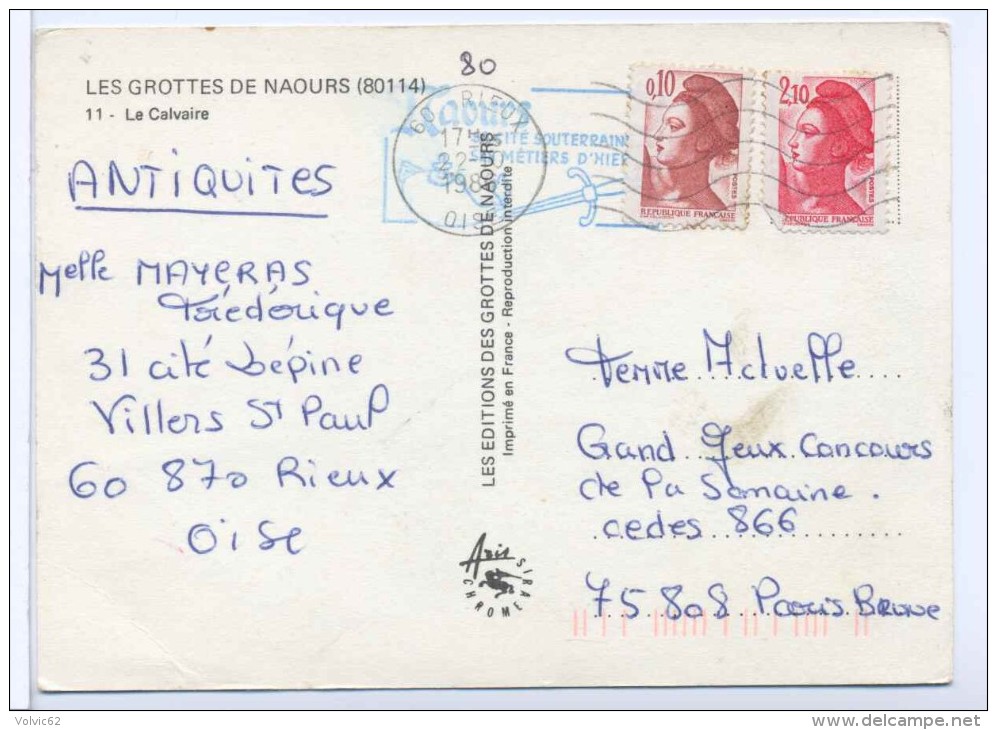 80
LES GROTTES DE NAOURS (80114)
11 - Le Calvaire
Naours
CITÉ SOUTERRAINE
MÉTIERS D'HIER
60 RIEUX
17H
22-10
OISE
0,10
POSTES
REPUBLIQUE FRANÇAISE
2,10
POSTES
REPUBLIQUE FRANÇAISE
ANTIQUITES
Melle MAYERAS
Frédérique
31 cité Lépine
Villers St Paul
60 870 Rieux
Oise
LES EDITIONS DES GROTTES DE NAOURS
Imprimé en France - Reproduction interdite
Aris
CHROME SIRA
Femme Actuelle
Grand Jeux Concours
de la Semaine.
cedes 866
75 808 Paris Brune
Volvic62
www.delcampe.net